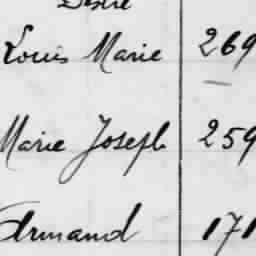 Désiré
Louis Marie 269
Marie Joseph 259
Armand 171